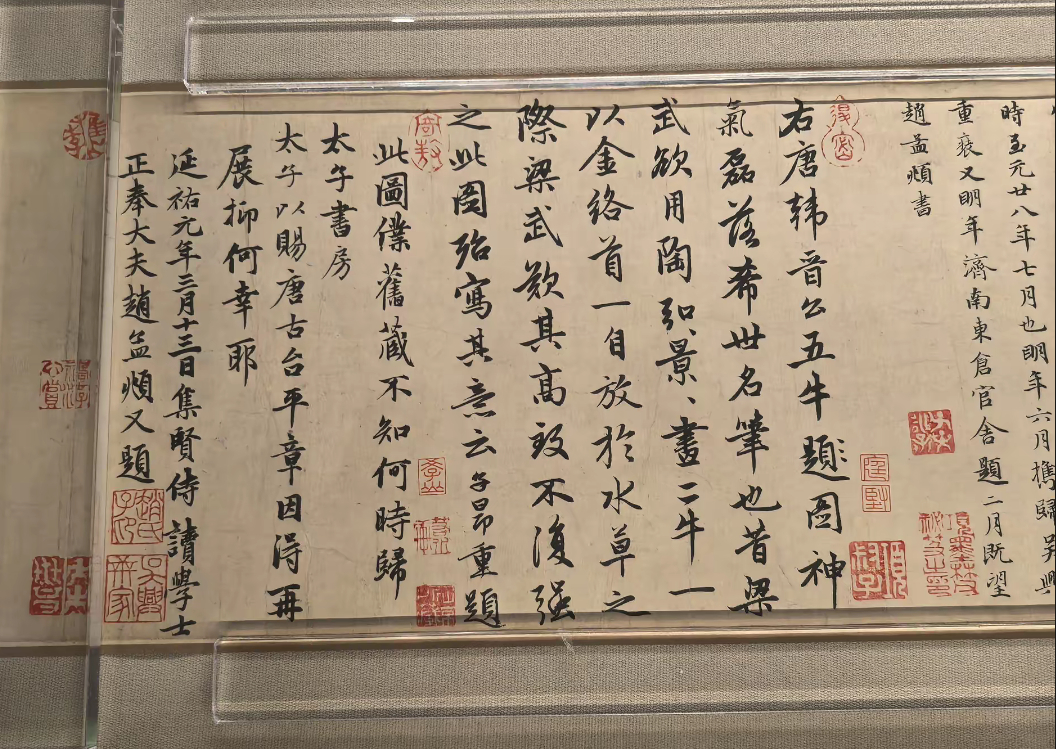 時至元廿八年七月也明年六月攜歸吳興
重裝又明年濟南東倉官舍題二月既望
趙孟頫書
右唐韓晉公五牛題圖神
氣磊落希世名筆也昔梁
武欲用陶弘景、畫二牛一
以金絡首一自放於水草之
際梁武歎其高致不復强
之此圖殆寫其意云子昂重題
此圖僕舊藏不知何時歸
太子書房
太子以賜唐古台平章因得再
展抑何幸耶
延祐元年三月十三日集賢侍讀學士
正奉大夫趙孟頫又題